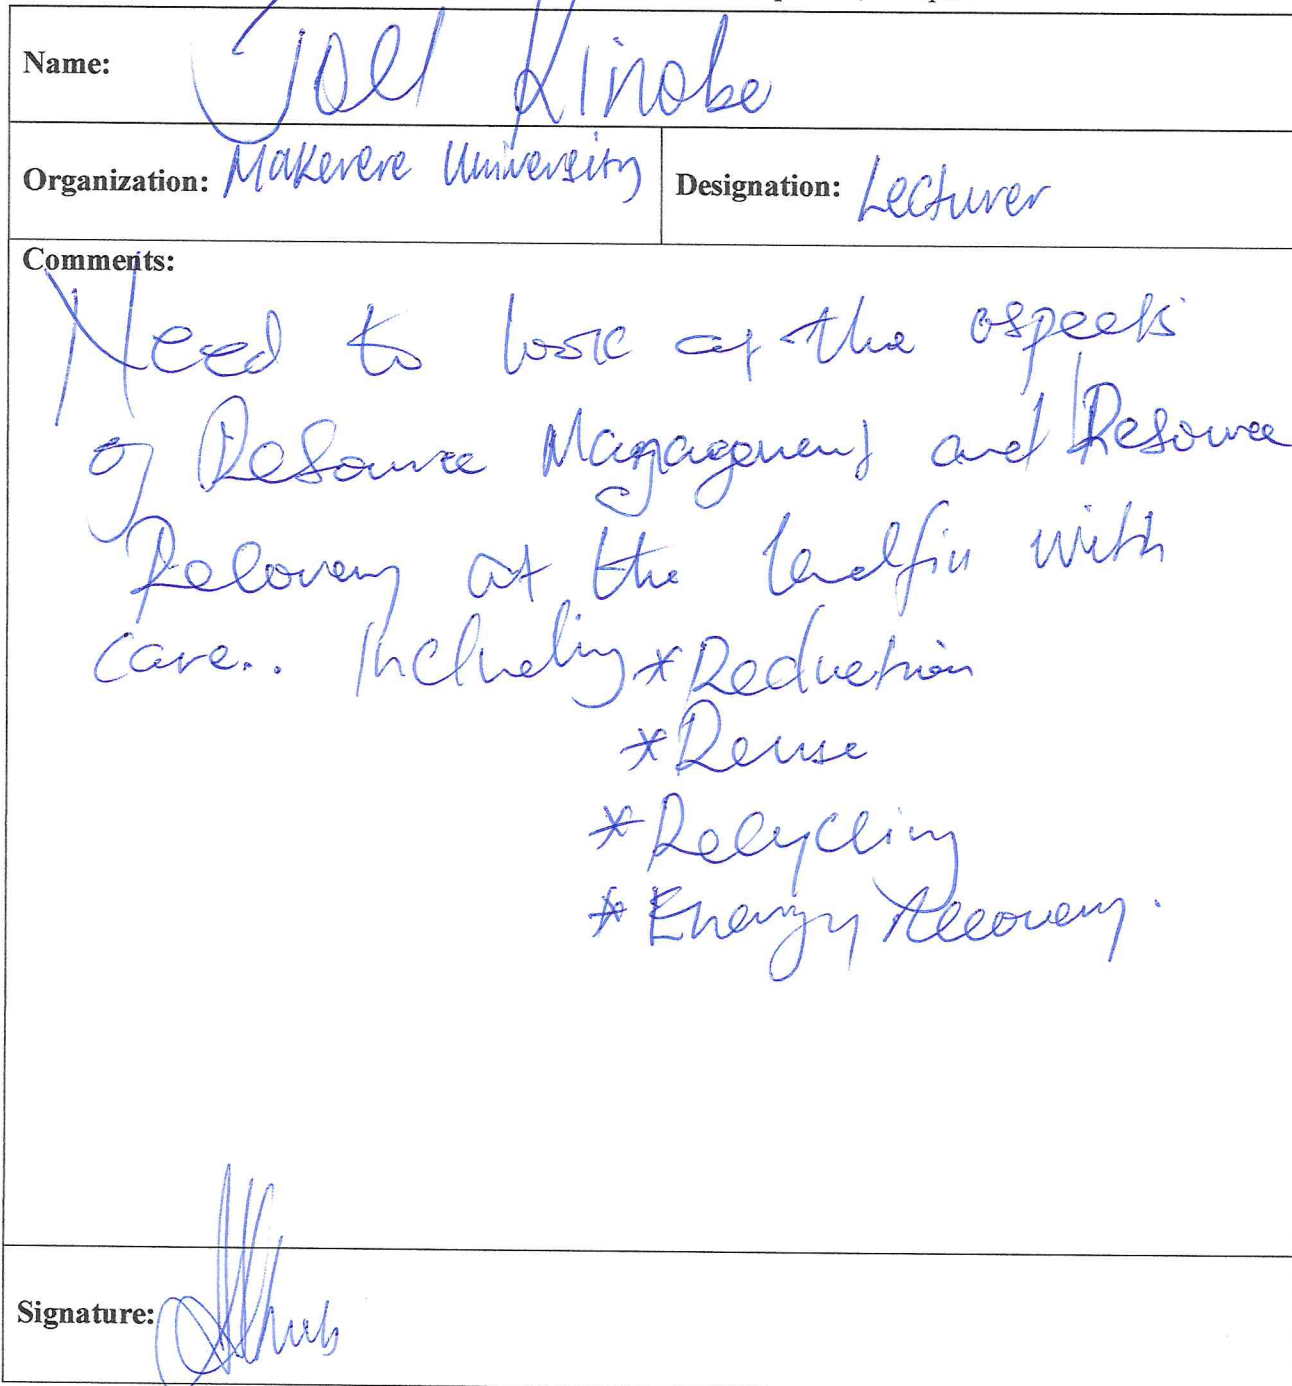 Name: Joel Kinobe
Organization: Makerere University Designation: Lecturer
Comments:
Need to look at the aspects
of Resource Management and Resource
Recovery at the landfill with
care.. Including *Reduction
*Reuse
*Recycling
*Energy Recovery.
Signature: